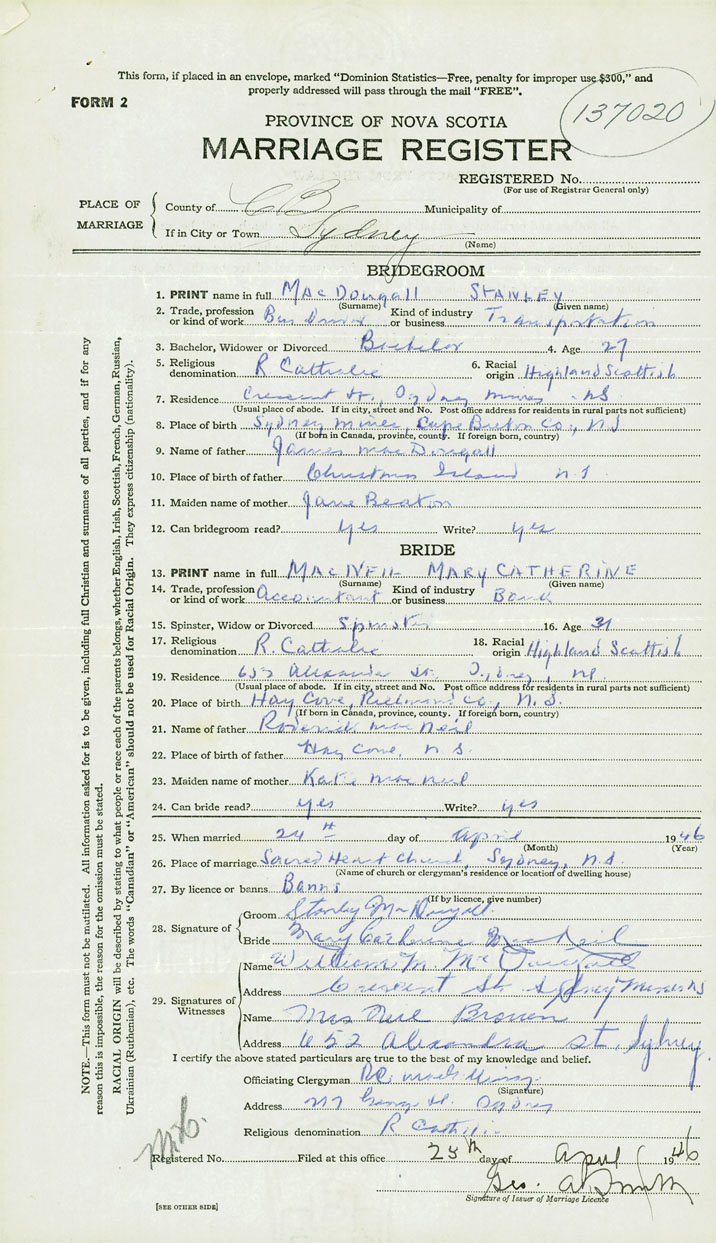 This form, if placed in an envelope, marked "Dominion Statistics—Free, penalty for improper use $300," and
properly addressed will pass through the mail "FREE".
FORM 2
137020
PROVINCE OF NOVA SCOTIA
MARRIAGE REGISTER
REGISTERED No.
(For use of Registrar General only)
PLACE OF MARRIAGE
County of C B Municipality of
If in City or Town Sydney
(Name)
BRIDEGROOM
1. PRINT name in full MacDougall STANLEY
(Surname) (Given name)
2. Trade, profession or kind of work Bus Driver Kind of industry or business Transportation
3. Bachelor, Widower or Divorced Bachelor 4. Age 27
5. Religious denomination R Catholic 6. Racial origin Highland Scottish
7. Residence Crescent St., Sydney Mines NS
(Usual place of abode. If in city, street and No. Post office address for residents in rural parts not sufficient)
8. Place of birth Sydney Mines, Cape Breton Co., N.S
(If born in Canada, province, county. If foreign born, country)
9. Name of father James MacDougall
10. Place of birth of father Christmas Island N.S.
11. Maiden name of mother Jane Beaton
12. Can bridegroom read? yes Write? yes
BRIDE
13. PRINT name in full MACNEIL MARY CATHERINE
(Surname) (Given name)
14. Trade, profession or kind of work Accountant Kind of industry or business Bank
15. Spinster, Widow or Divorced Spinster 16. Age 31
17. Religious denomination R. Catholic 18. Racial origin Highland Scottish
19. Residence 652 Alexandra St. Sydney, NS.
(Usual place of abode. If in city, street and No. Post office address for residents in rural parts not sufficient)
20. Place of birth Hay Cove, Richmond Co., N.S.
(If born in Canada, province, county. If foreign born, country)
21. Name of father Roderick MacNeil
22. Place of birth of father Hay Cove, N.S.
23. Maiden name of mother Kate MacNeil
24. Can bride read? yes Write? yes
25. When married 24th day of April 1946
(Month) (Year)
26. Place of marriage Sacred Heart Church, Sydney, N.S.
(Name of church or clergyman's residence or location of dwelling house)
27. By licence or banns Banns
(If by licence, give number)
28. Signature of
Groom Stanley MacDougall
Bride Mary Catherine MacNeil
29. Signatures of Witnesses
Name William M. McDougall
Address Crescent St. Sydney Mines NS
Name Mrs Brown
Address 652 Alexandra St. Sydney.
I certify the above stated particulars are true to the best of my knowledge and belief.
Officiating Clergyman
(Signature)
Address George St. Sydney
Religious denomination R Catholic
Registered No. Filed at this office 25th day of April 1946
Geo. A. Smith
Signature of Issuer of Marriage Licence
[SEE OTHER SIDE]
NOTE.—This form must not be mutilated. All information asked for is to be given, including full Christian and surnames of all parties, and if for any
reason this is impossible, the reason for the omission must be stated.
RACIAL ORIGIN will be described by stating to what people or race each of the parents belongs, whether English, Irish, Scottish, French, German, Russian,
Ukrainian (Ruthenian), etc. The words "Canadian" or "American" should not be used for Racial Origin. They express citizenship (nationality).